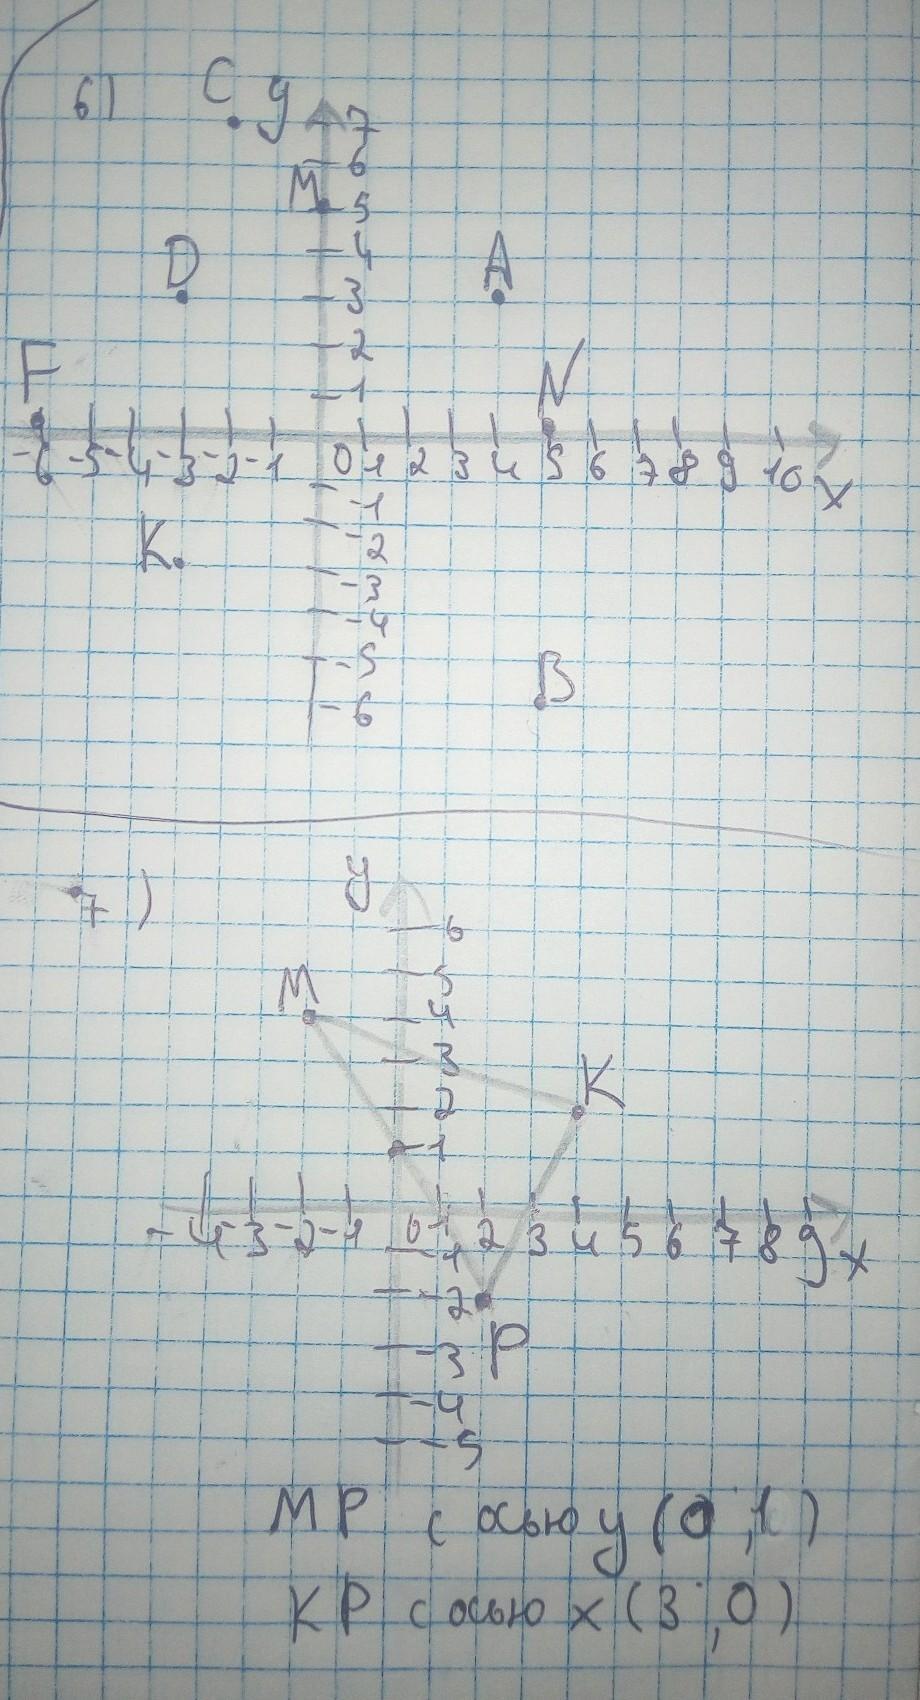 6)
C y
7
6
M 5
4
D A
3
2
F N
1
-6 -5 -4 -3 -2 -1 0 1 2 3 4 5 6 7 8 9 10 x
-1
K. -2
-3
-4
-5
B
-6
7)
y
6
5
M
4
3
K
2
1
-4 -3 -2 -1 0 1 2 3 4 5 6 7 8 9 x
-1
-2
P
-3
-4
-5
MP с осью y (0;1)
KP с осью x (3;0)